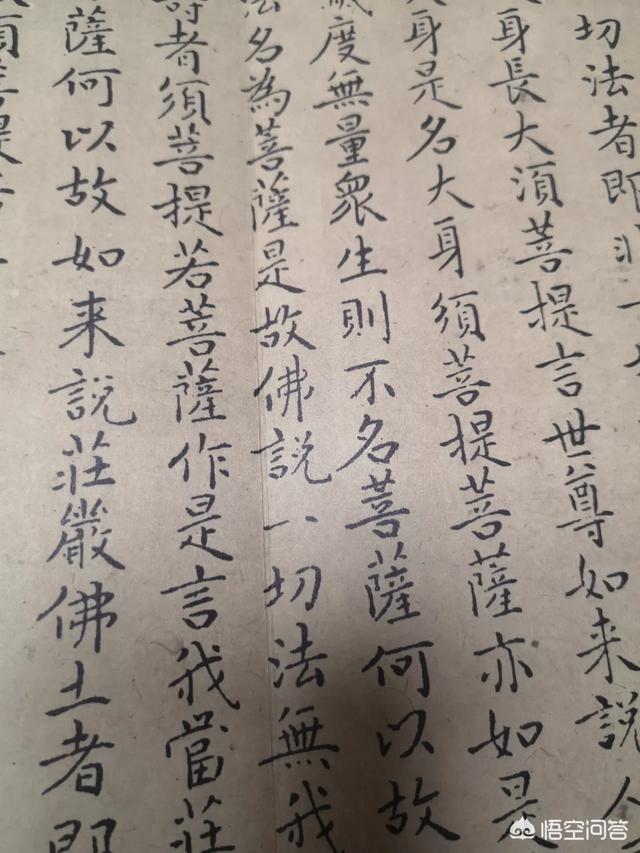 切法者即非一
身長大湏菩提言世尊如来說人
身是名大身須菩提菩薩亦如是
滅度無量眾生則不名菩薩何以故
法名為菩薩是故佛說一切法無我
壽者須菩提若菩薩作是言我當莊
薩何以故如来說莊嚴佛土者即
須菩提
悟空问答